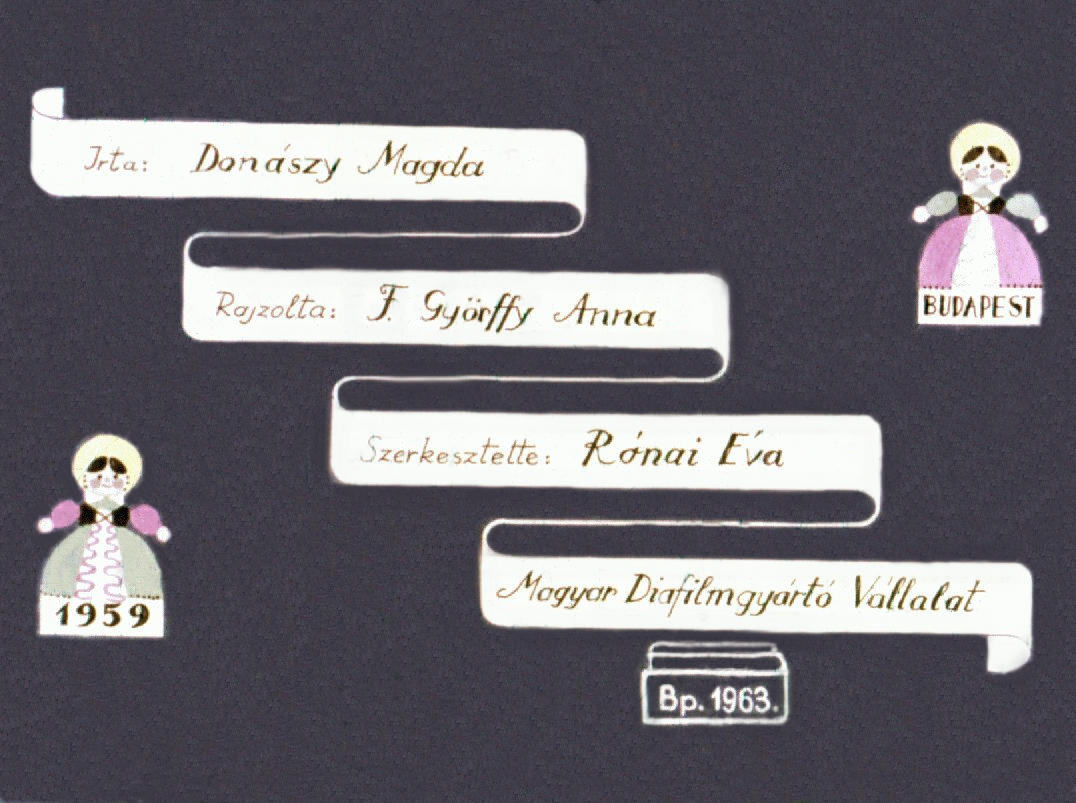 Irta: Donászy Magda
Rajzolta: F. Györffy Anna
BUDAPEST
Szerkesztette: Rónai Éva
Magyar Diafilmgyártó Vállalat
1959
Bp. 1963.